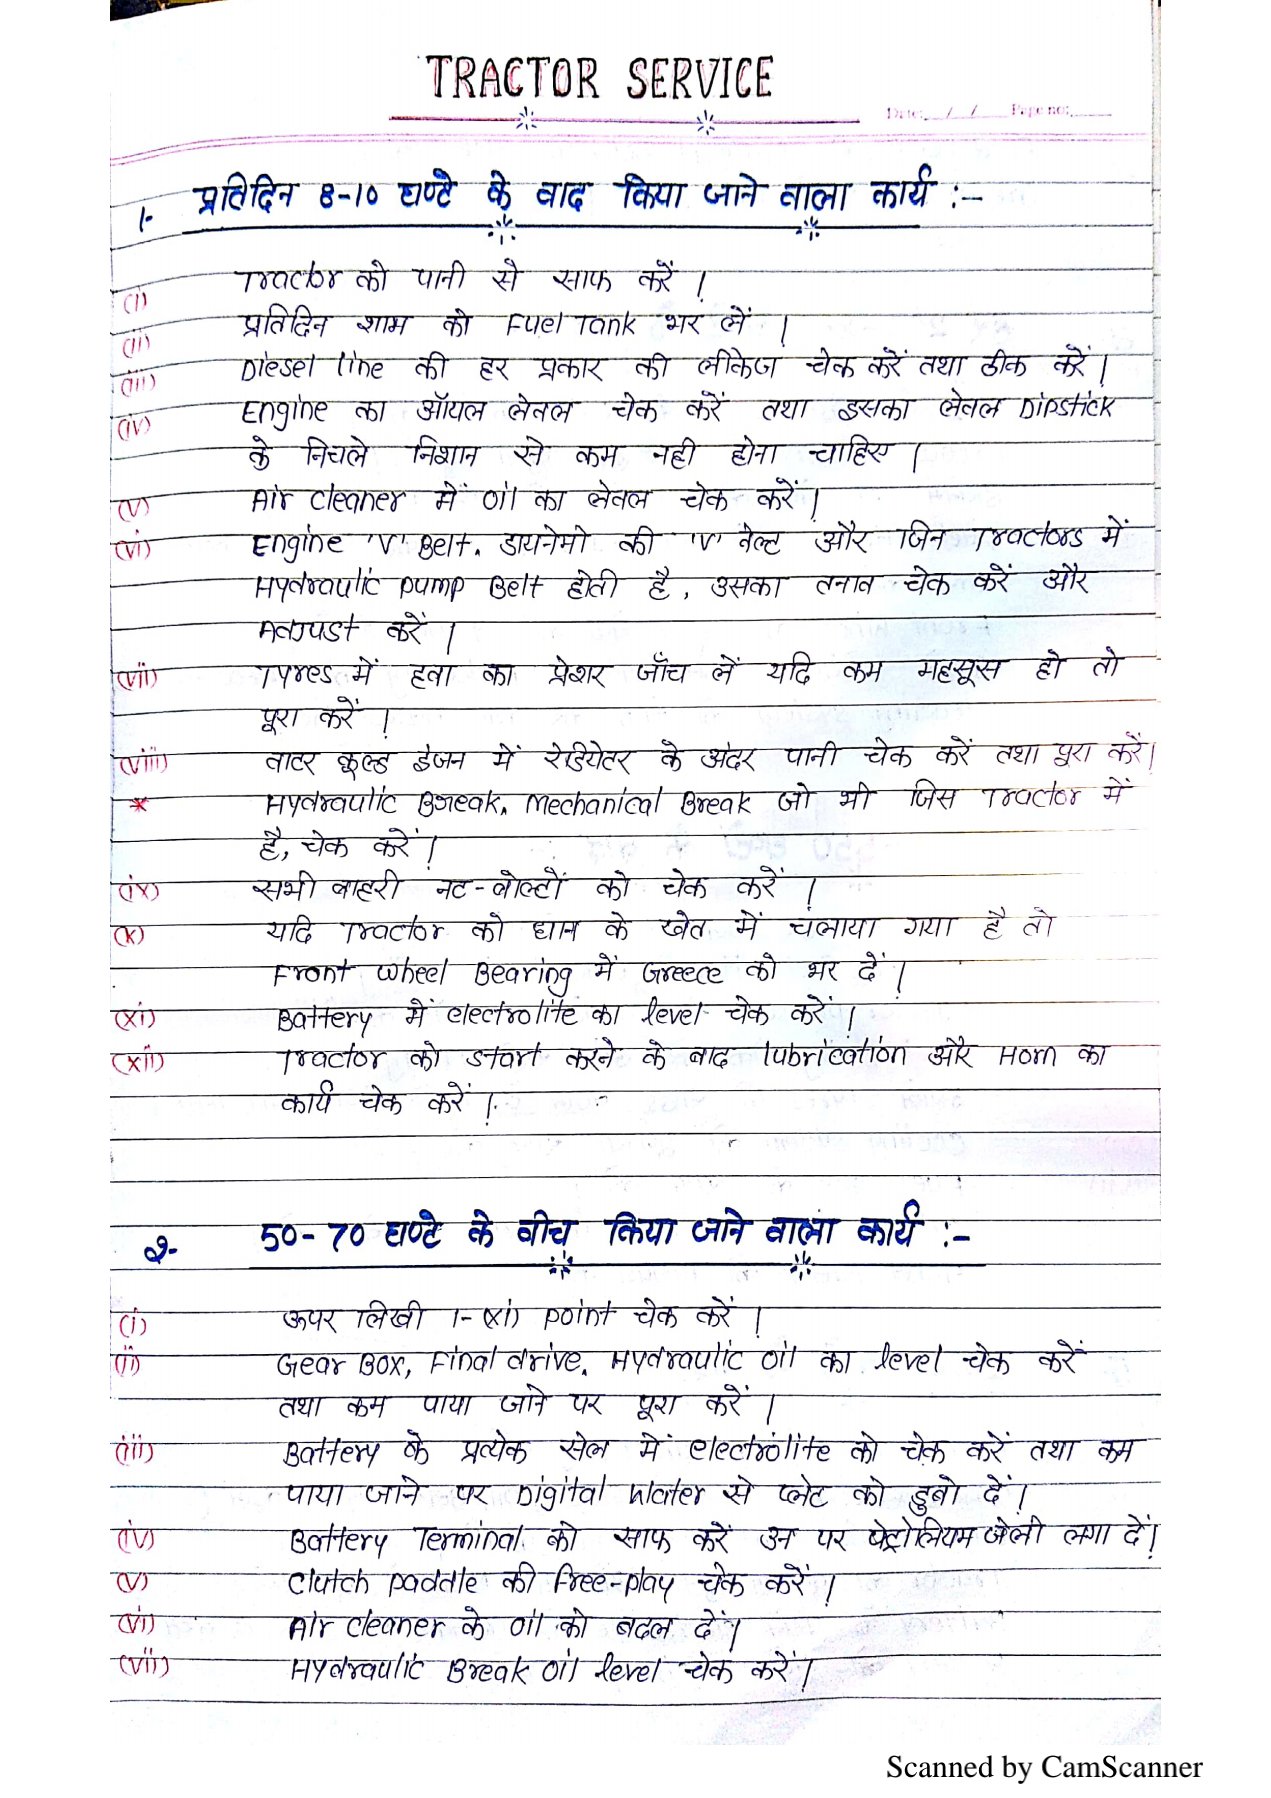 TRACTOR SERVICE
Date:__/__/____ Page no:_____
1- प्रतिदिन 8-10 घण्टे के बाद किया जाने वाला कार्य :-
(i) Tractor को पानी से साफ करें ।
(ii) प्रतिदिन शाम को Fuel Tank भर लें ।
(iii) Diesel line की हर प्रकार की लीकेज चेक करें तथा ठीक करें ।
(iv) Engine का ऑयल लेवल चेक करें तथा इसका लेवल Dipstick
के निचले निशान से कम नही होना चाहिए ।
(v) Air cleaner में oil का लेवल चेक करें ।
(vi) Engine 'V' Belt, डायनेमो की 'V' बेल्ट और जिन Tractors में
Hydraulic pump Belt होती है, उसका तनाव चेक करें और
Adjust करें ।
(vii) Tyres में हवा का प्रेशर जाँच लें यदि कम महसूस हो तो
पूरा करें ।
(viii) वाटर कूल्ड इंजन में रेडियेटर के अंदर पानी चेक करें तथा पूरा करें ।
* Hydraulic Break, Mechanical Break जो भी जिस Tractor में
है, चेक करें ।
(ix) सभी बाहरी नट-बोल्टों को चेक करें ।
(x) यदि Tractor को धान के खेत में चलाया गया है तो
Front wheel Bearing में Greece को भर दें ।
(xi) Battery में electrolite का level चेक करें ।
(xii) Tractor को start करने के बाद lubrication और Horn का
कार्य चेक करें ।
2- 50-70 घण्टे के बीच किया जाने वाला कार्य :-
(i) ऊपर लिखी 1-(xi) point चेक करें ।
(ii) Gear Box, Final drive, Hydraulic oil का level चेक करें
तथा कम पाया जाने पर पूरा करें ।
(iii) Battery के प्रत्येक सेल में electrolite को चेक करें तथा कम
पाया जाने पर Digital Water से प्लेट को डुबो दें ।
(iv) Battery Terminal को साफ करें उन पर पेट्रोलियम जेली लगा दें ।
(v) Clutch paddle की free-play चेक करें ।
(vi) Air cleaner के oil को बदल दें ।
(vii) Hydraulic Break oil level चेक करें ।
Scanned by CamScanner